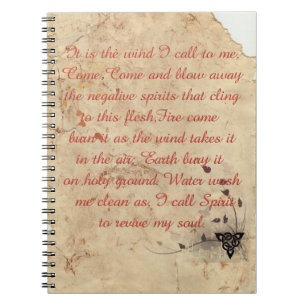 "It is the wind I call to me,
Come, Come and blow away
the negative spirits that cling
to this flesh,Fire come
burn it as the wind takes it
in the air, Earth bury it
on holy ground, Water wash
me clean as, I call Spirit
to revive my soul.